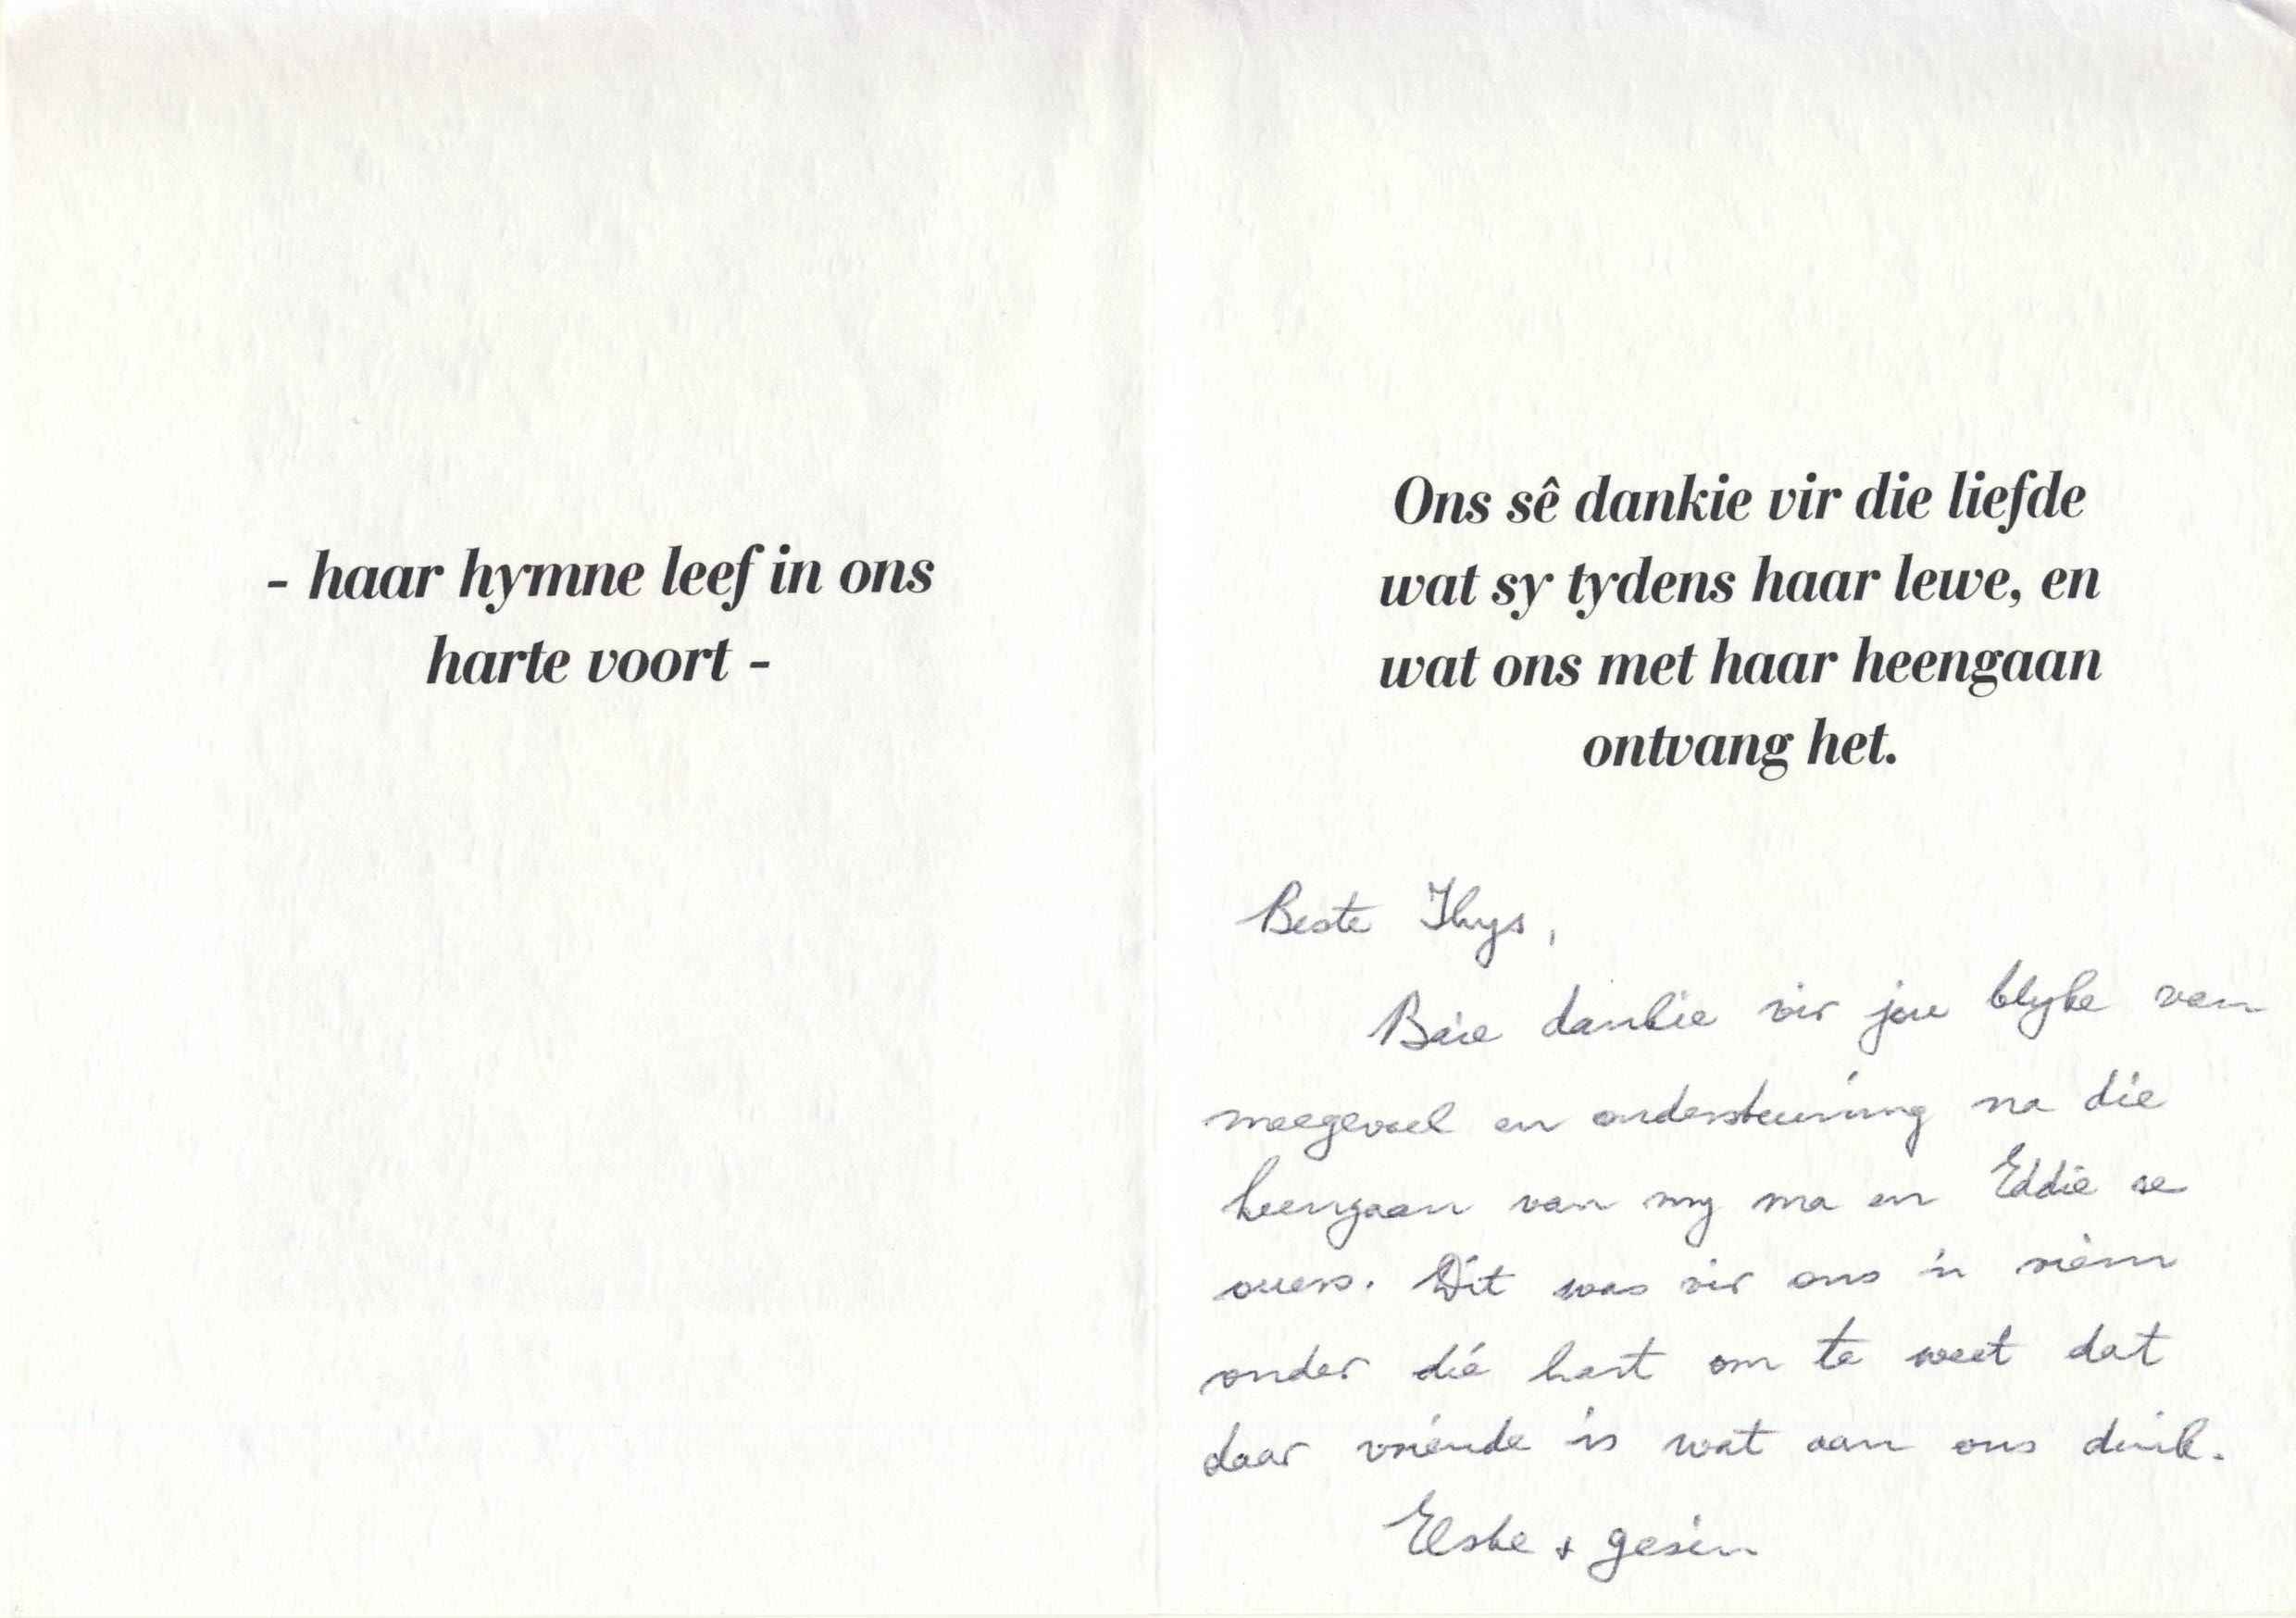 - haar hymne leef in ons
harte voort -
Ons sê dankie vir die liefde
wat sy tydens haar lewe, en
wat ons met haar heengaan
ontvang het.
Beste Thys,
Baie dankie vir jou blyke van
meegevoel en ondersteuning na die
heengaan van my ma en Eddie se
ouers. Dit was vir ons 'n riem
onder die hart om te weet dat
daar vriende is wat aan ons dink.
Elske + gesin